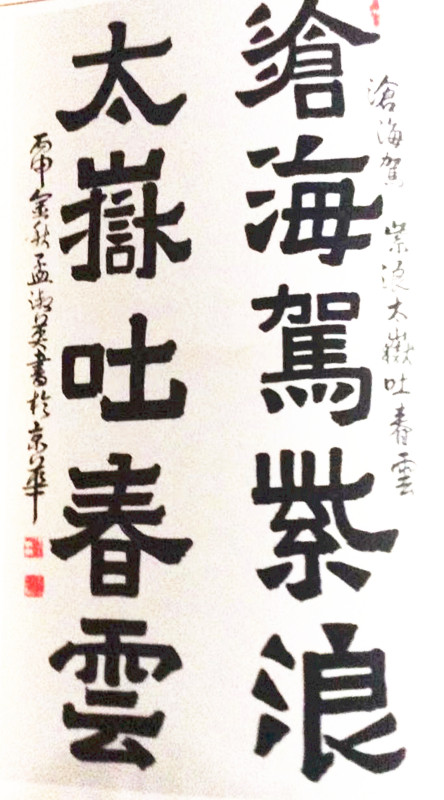 滄海駕紫浪太嶽吐春雲
滄海駕紫浪
太嶽吐春雲
丙申金秋孟淑英書於京華